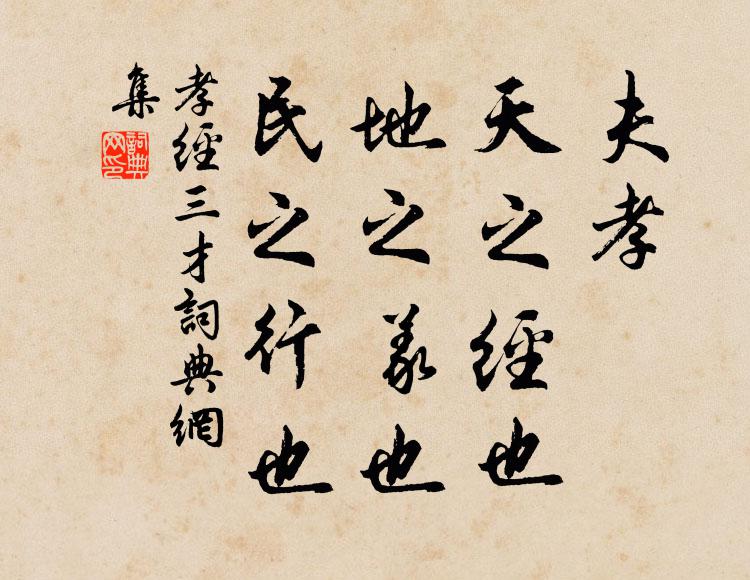 夫孝
天之經也
地之義也
民之行也
孝經三才詞典網
集
詞典
网印